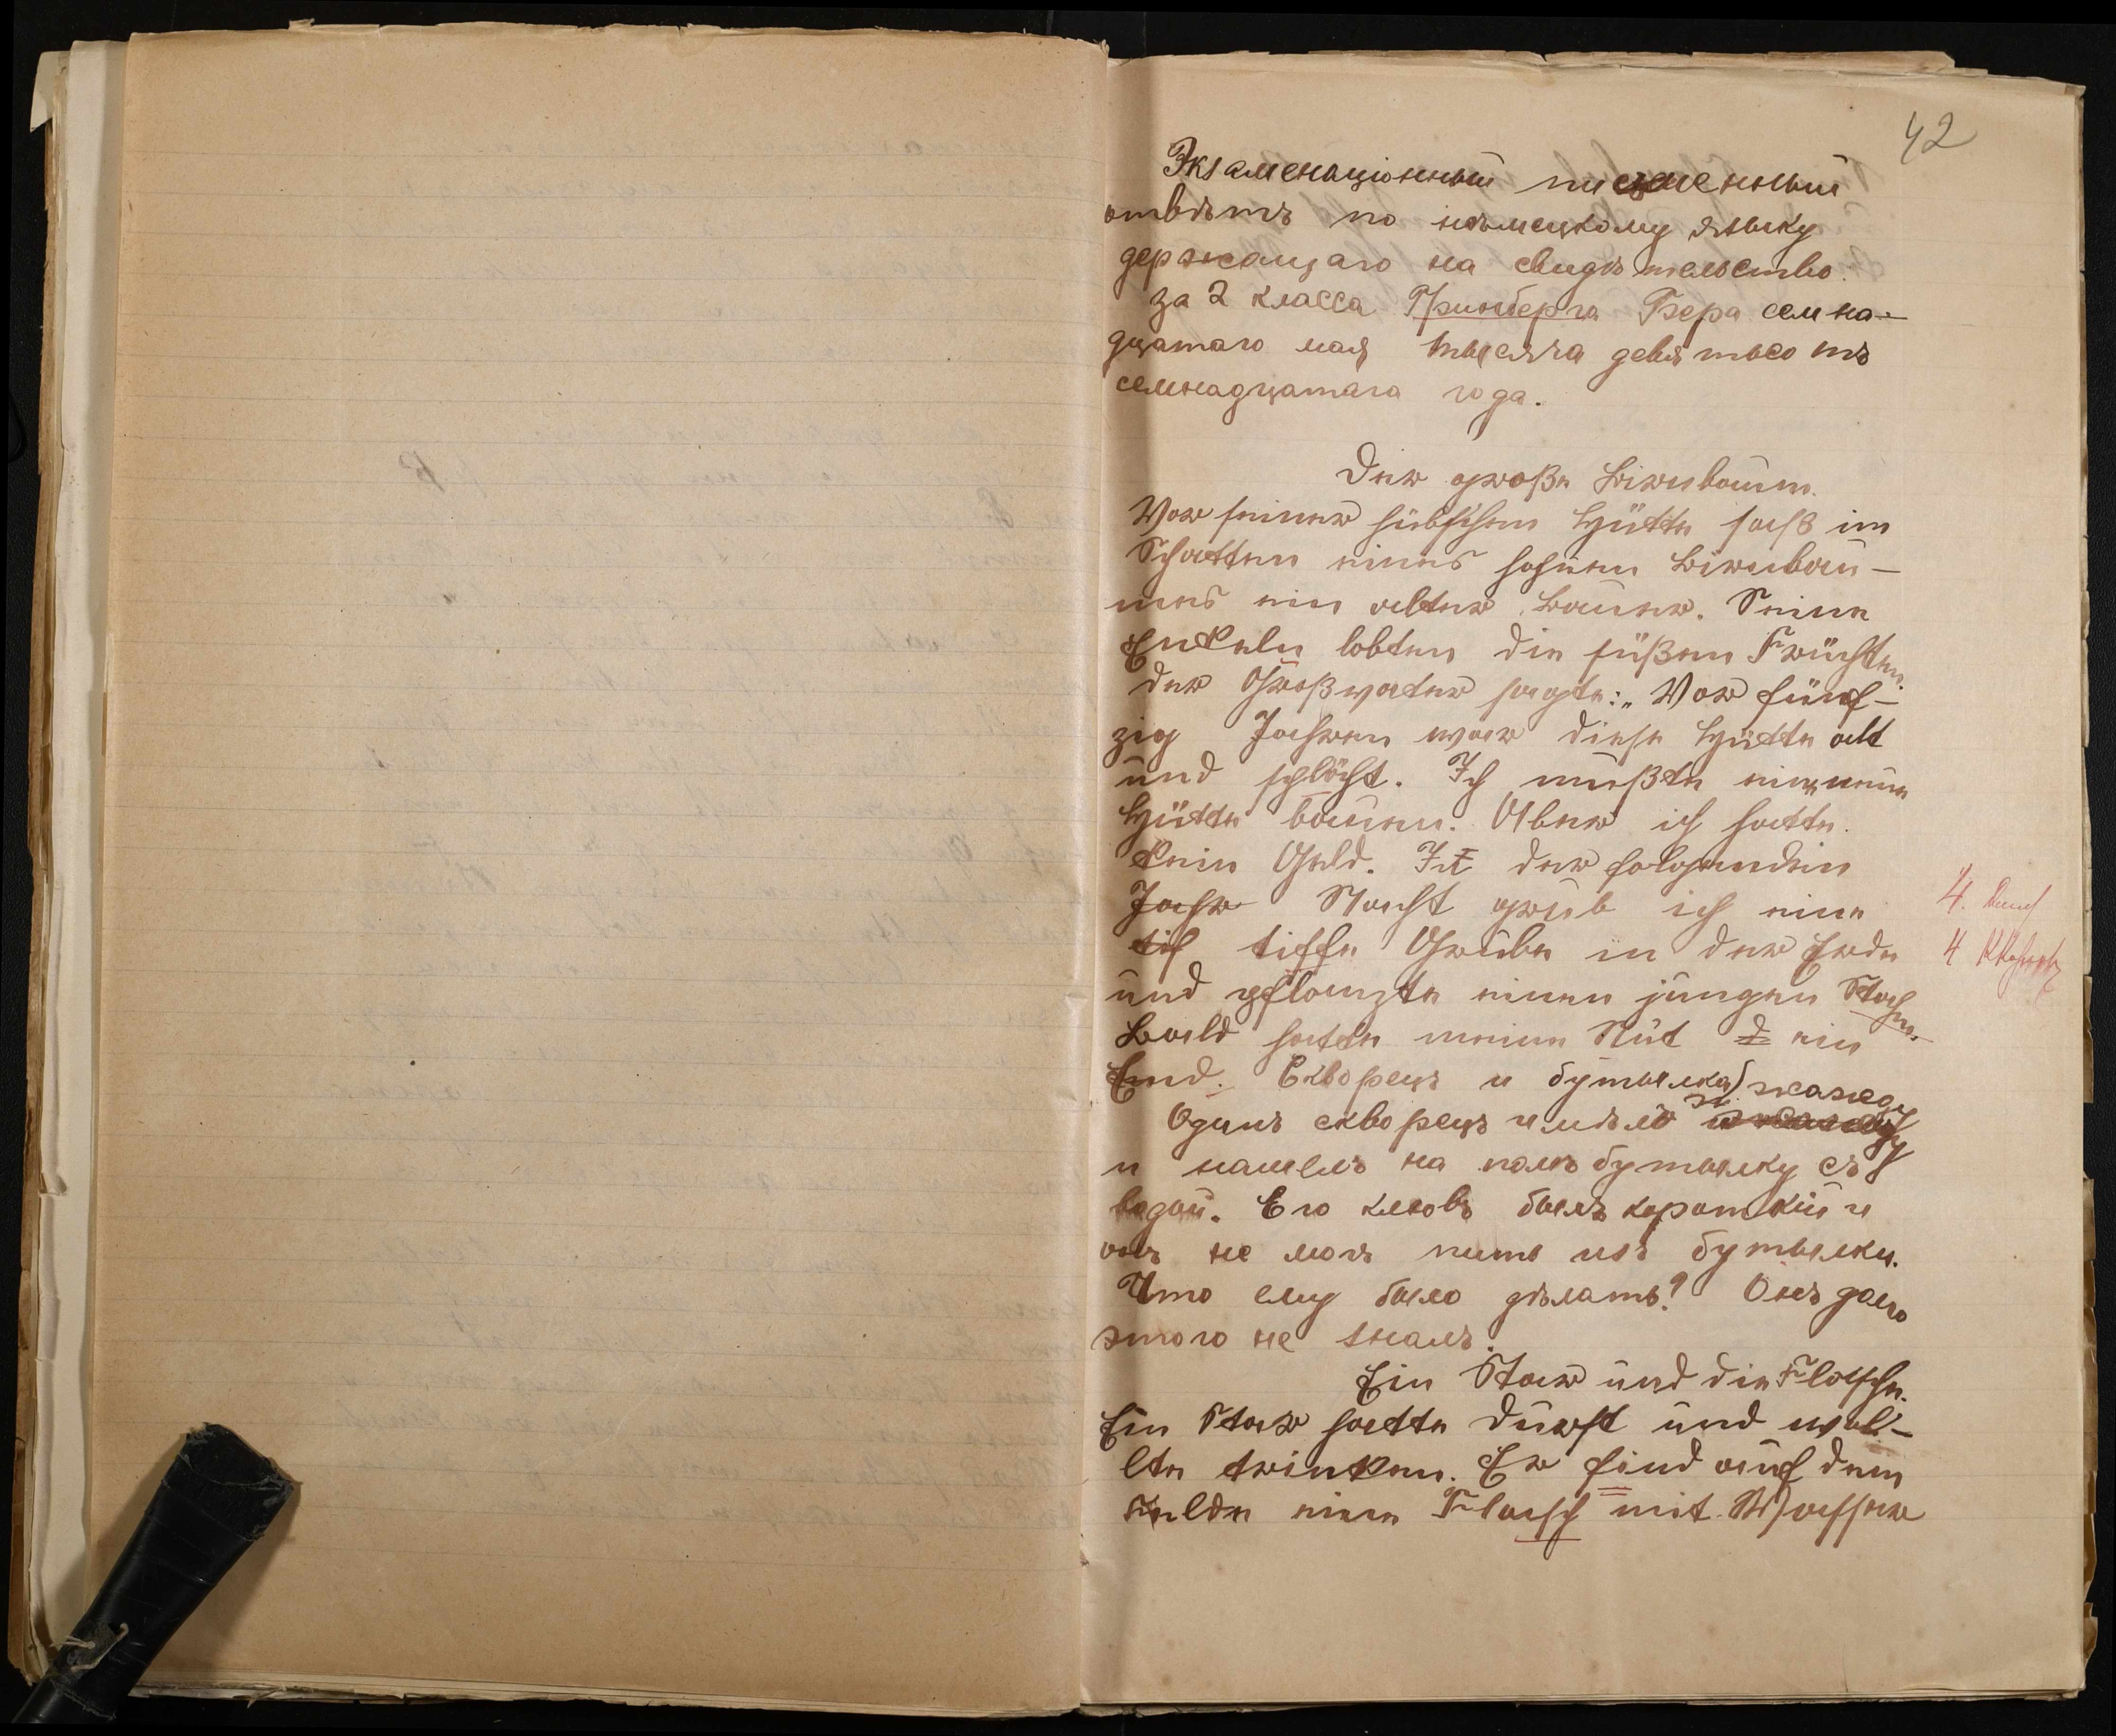 42
Экзаменаціонный письменный
отвѣтъ по нѣмецкому языку
держащаго на свидѣтельство
за 2 класса Гринберга Бера семна-
дцатаго мая тысяча девятьсотъ
семнадцатага года.
Der große Birnbaum.
Vor seiner hübschen Hütte saß im
Schatten eines hohen Birnbau-
mes ein alter Bauer. Seine
Enkeln lobten die süßen Früchten.
Der Großvater sagte: „Vor fünf-
zig Jahren war diese Hütte alt
und schlächt. Ich mußte eine neue
Hütte bauen. Aber ich hatte
kein Geld. In der folgendein
Jahr Nacht grub ich eine
tif tiffe Grube in der Erde
und pflanzte einen jungen
Bald hatte meine Nüt d ein
End. Скворецъ и бутылка
жажду
Одинъ скворецъ имѣлъ
и нашелъ на полѣ бутылку съ
водой. Его клювъ былъ короткій и
онъ не могъ пить изъ бутылки.
Что ему было дѣлать? Онъ долго
этого не зналъ.
Ein Star und die Flasche.
Ein Star hatte Durst und wol-
lte trinken. Er find auf dem
Felde eine Flasch mit Wasser
4.
4